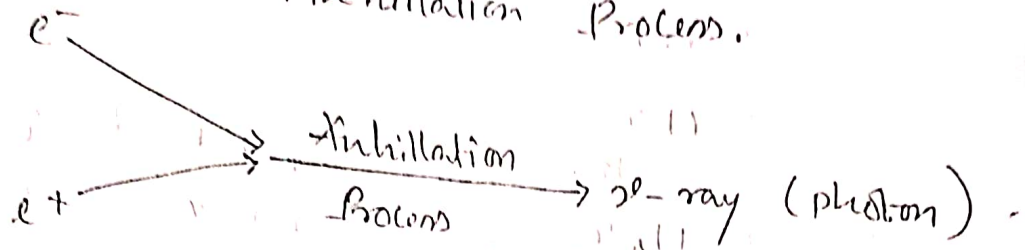 e⁻ Process.
Anhillation
e+ Process γ-ray (photon).